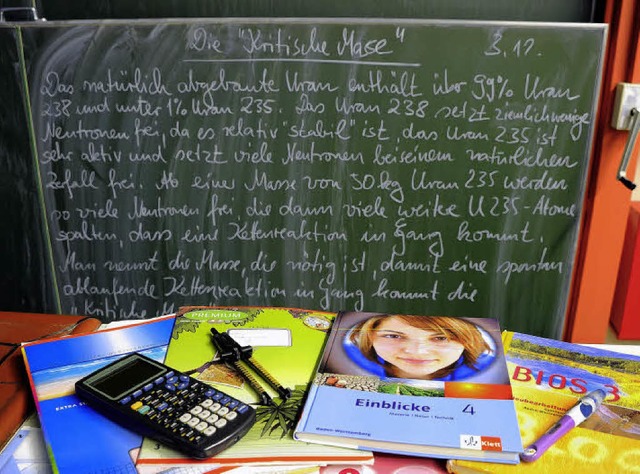 Die "Kritische Mase" 3.12.
Das natürlich abgebaute Uran enthält über 99% Uran
238 und unter 1% Uran 235. Das Uran 238 setzt ziemlich wenige
Neutronen frei, da es relativ "stabil" ist, das Uran 235 ist
sehr aktiv und setzt viele Neutronen bei seinem natürlichen
Zerfall frei. Ab einer Masse von 50 kg Uran 235 werden
so viele Neutronen frei, die dann viele weitere U 235-Atome
spalten, dass eine Kettenreaktion in Gang kommt.
Man nennt die Masse, die nötig ist, damit eine spontan
ablaufende Kettenreaktion in Gang kommt die
"Kritische M
PREMIUM
EXTRA
Einblicke 4
Baden-Württemberg
Klett
BIOS 3